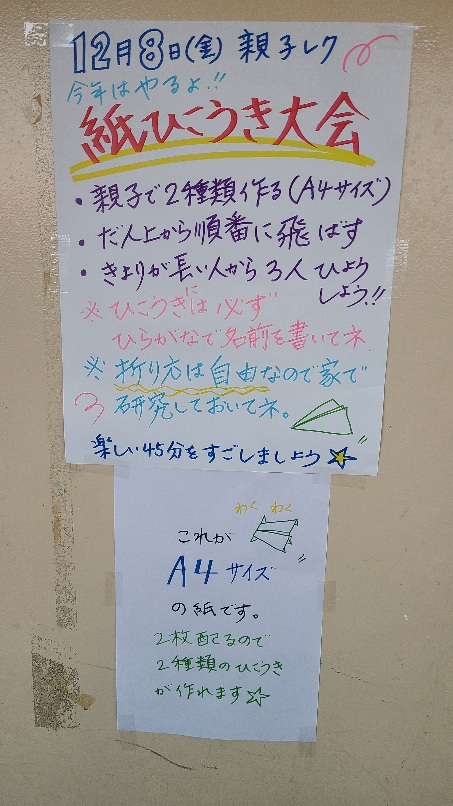 12月8日(金) 親子レク
今年はやるよ!!
紙ひこうき大会
・親子で2種類作る(A4サイズ)
・だん上から順番に飛ばす
・きょりが長い人から3人ひょう
しょう!!
※ひこうきには必ず
ひらがなで名前を書いてネ
※折り方は自由なので家で
研究しておいてネ。
楽しい45分をすごしましょう☆
わくわく
これが
A4サイズ
の紙です。
2枚配るので
2種類のひこうき
が作れます☆